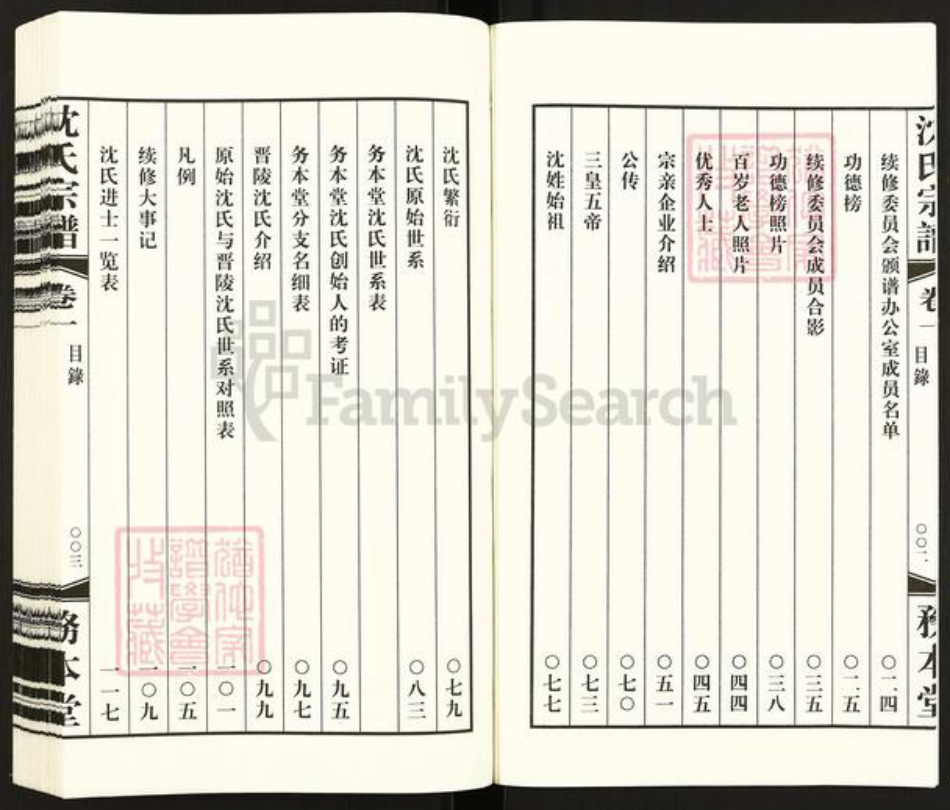 沈氏宗譜
卷一
目錄
〇〇二
務本堂
续修委员会颁谱办公室成员名单 〇二四
功德榜 〇二五
续修委员会成员合影 〇三五
功德榜照片 〇三八
百岁老人照片 〇四四
优秀人士 〇四五
宗亲企业介绍 〇五一
公传 〇七〇
三皇五帝 〇七三
沈姓始祖 〇七七
沈氏繁衍 〇七九
沈氏原始世系 〇八三
务本堂沈氏世系表
务本堂沈氏创始人的考证 〇九五
务本堂分支名细表 〇九七
晋陵沈氏介绍 〇九九
原始沈氏与晋陵沈氏世系对照表 一〇一
凡例 一〇五
续修大事记 一〇九
沈氏进士一览表 一一七
沈氏宗譜
卷一
目錄
〇〇三
務本堂
FamilySearch